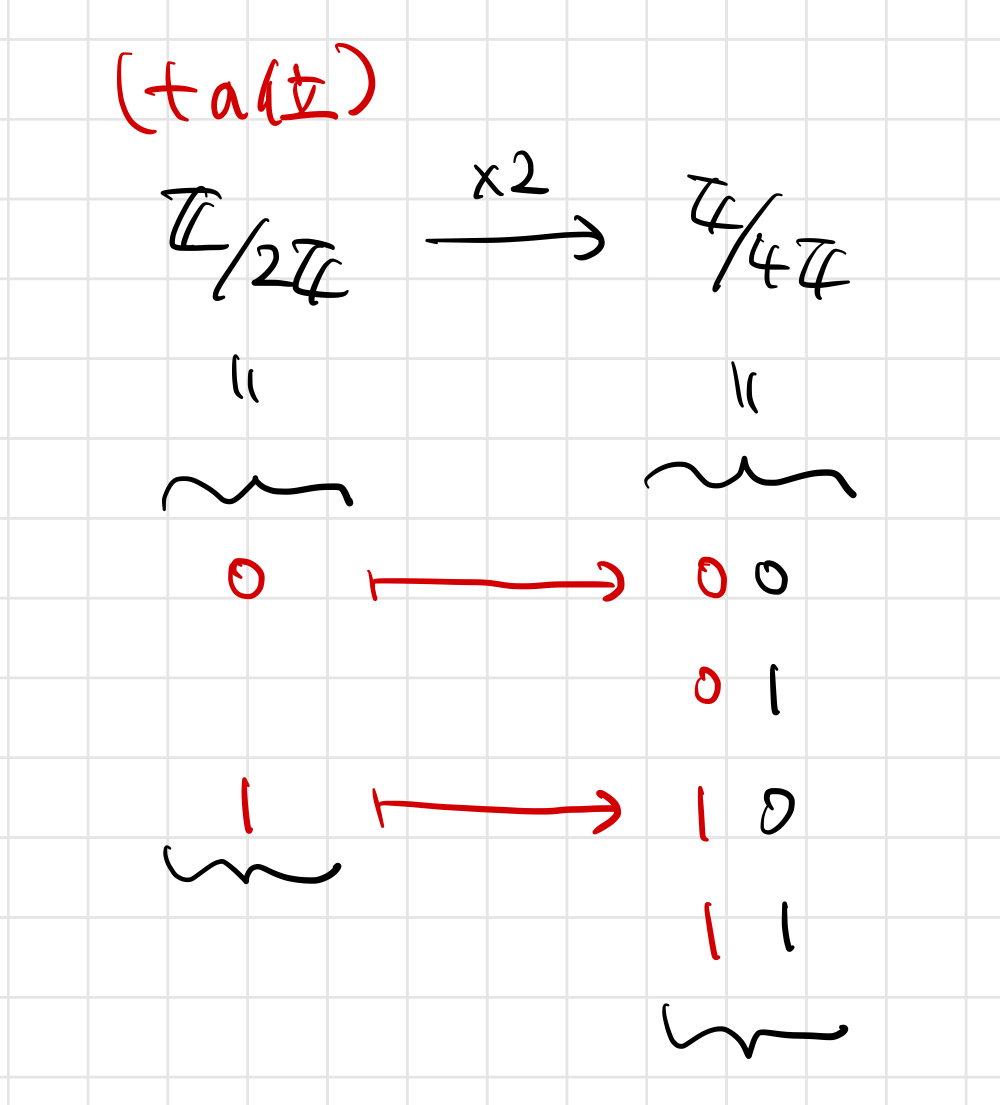 (十の位)
ℤ/2ℤ ×2 → ℤ/4ℤ
|| ||
0 ↦ 0 0
0 1
1 ↦ 1 0
1 1